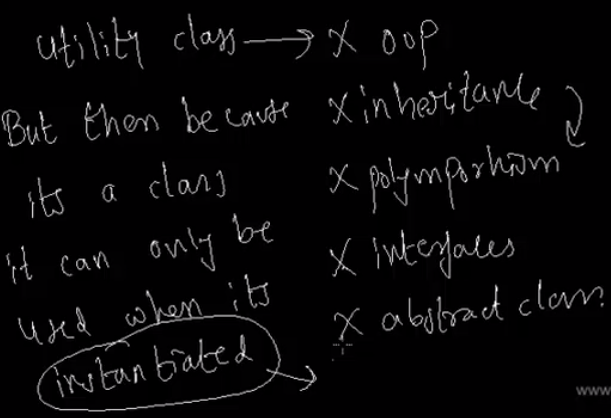 utility class → X OOP
But then because
its a class
it can only be
used when its
instantiated →
X inheritance
X polymporhism
X interfaces
X abstract class
www.